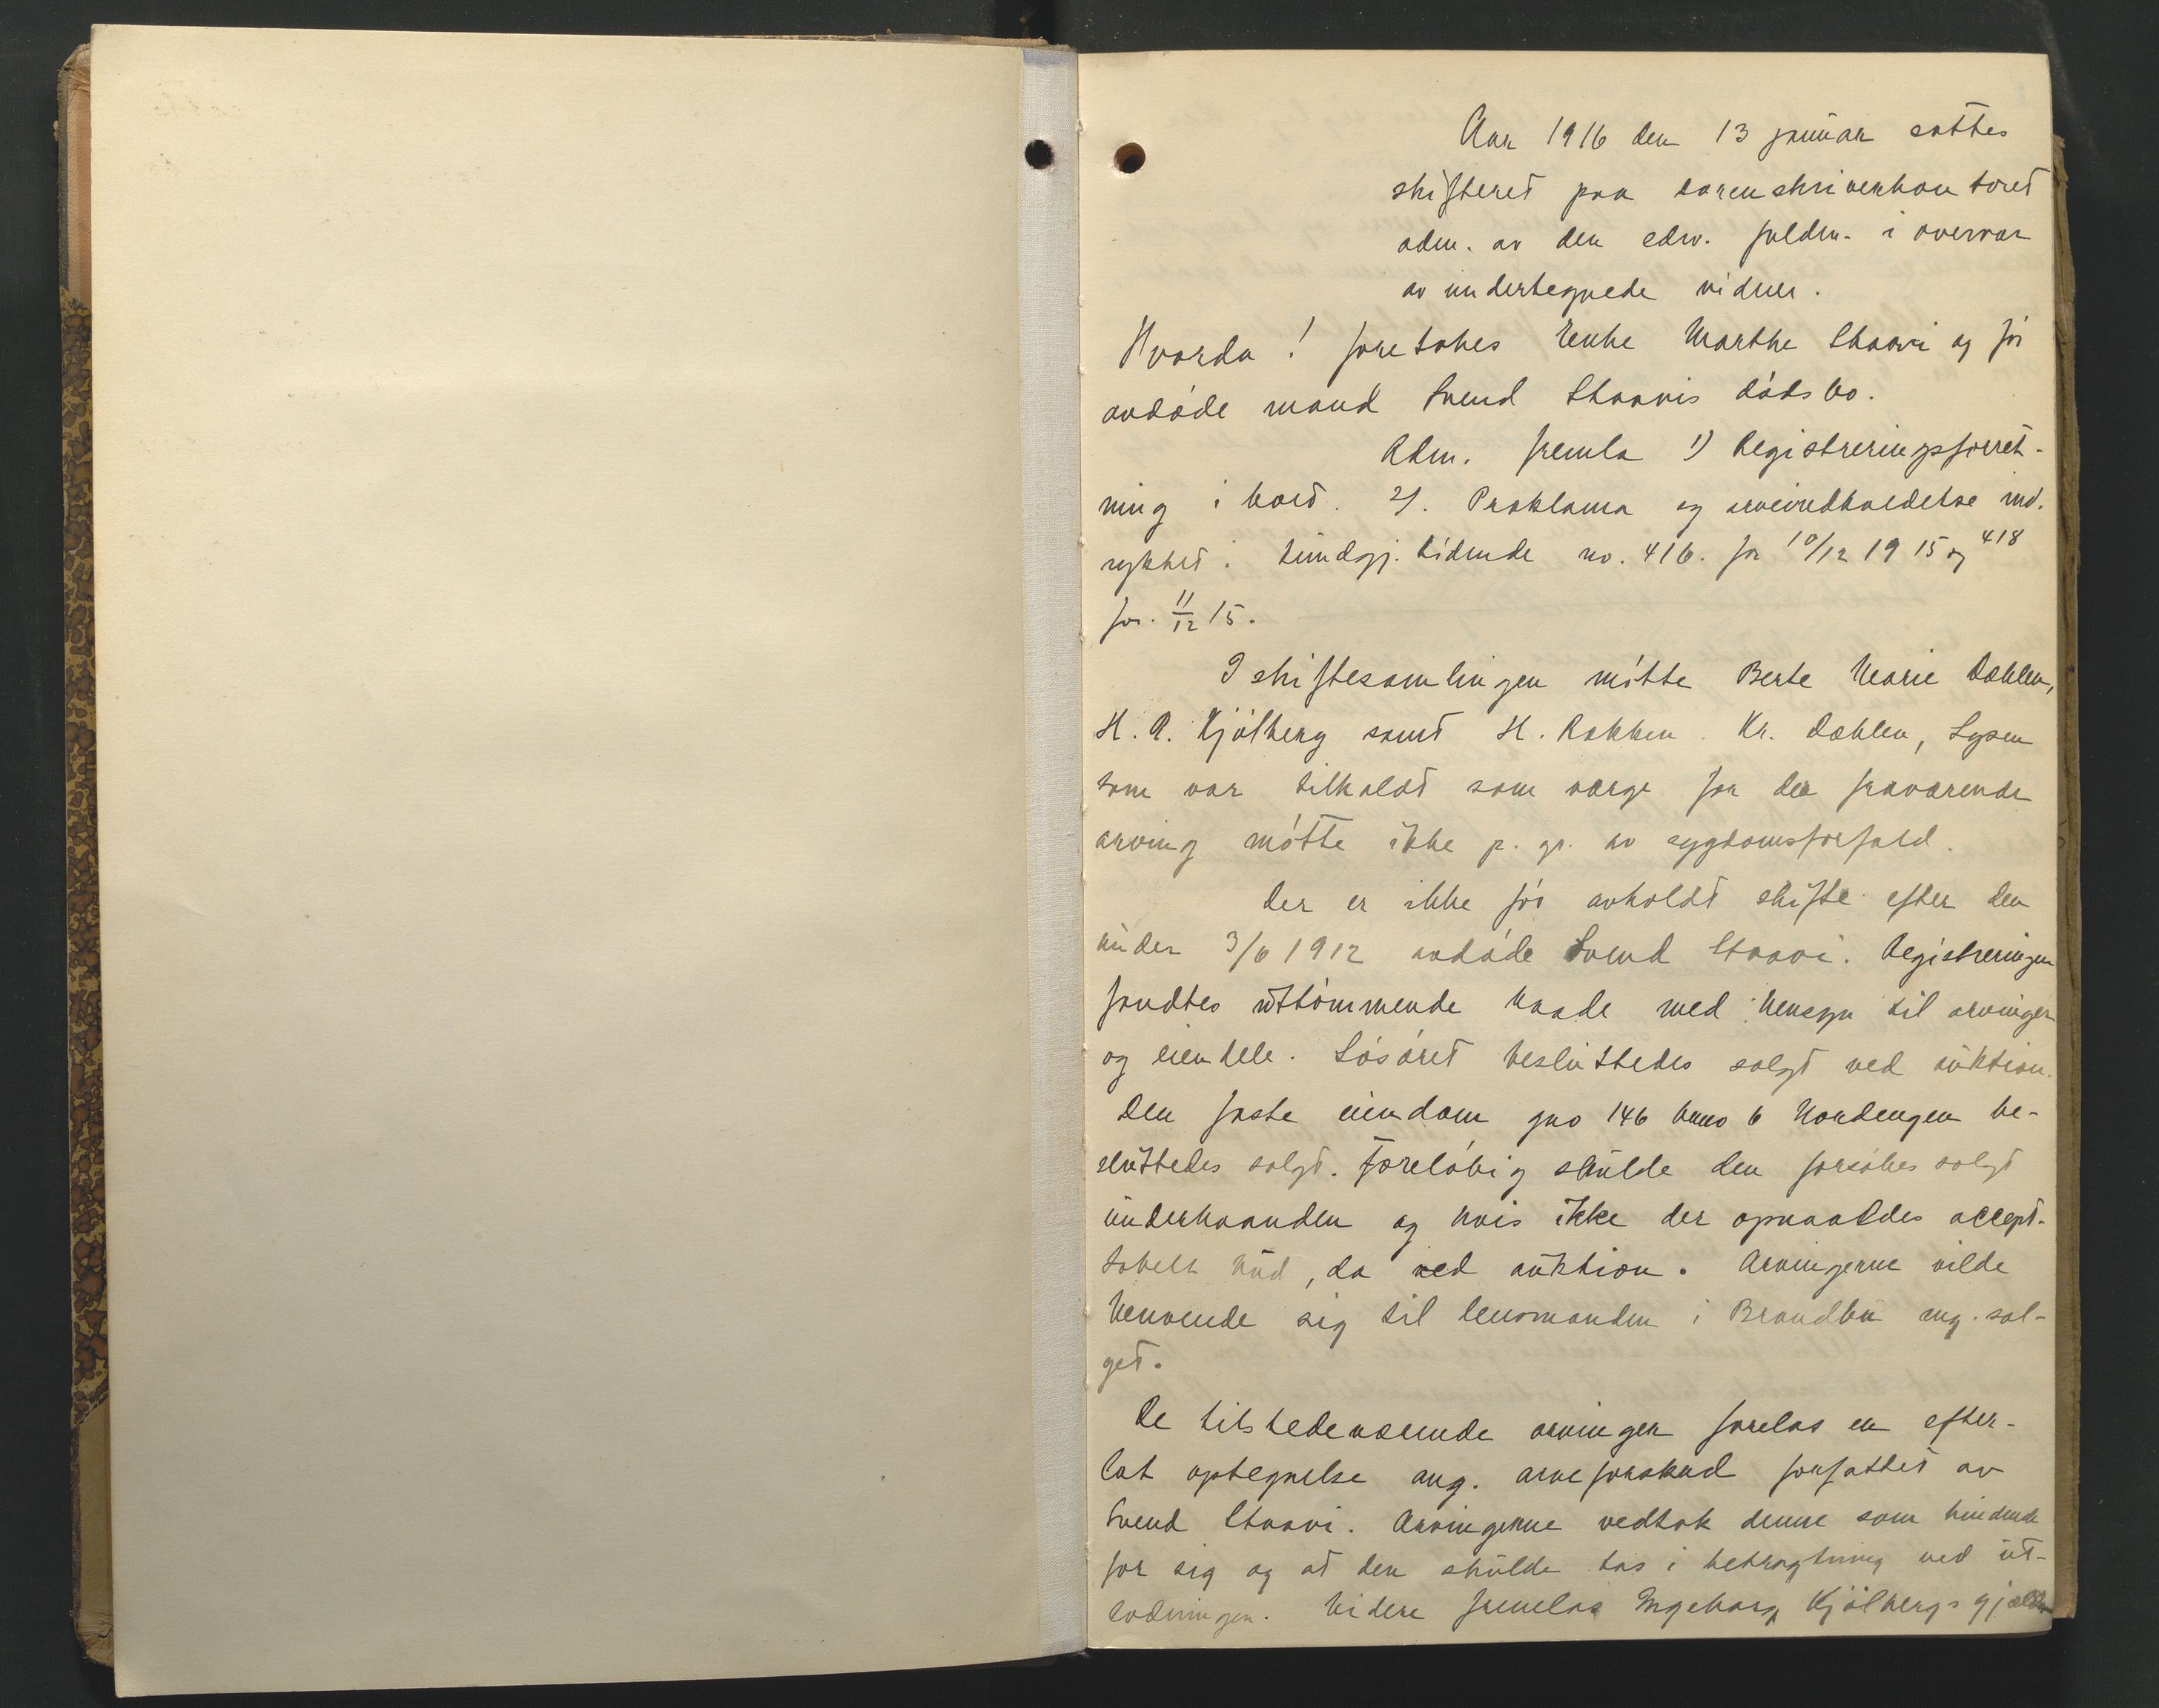 Aar 1916 den 13 januar sattes
skifteret paa sorenskriverkontoret
adm. av den edsv. fuldm. i overvær
av undertegnede vidner.
Hvorda! foretokes Enke Marthe Staavi og før
avdøde mand Svend Staavis dødsbo.
Adm. fremla 1) Registreringsforret-
ning i boet. 2). Proklama og arveindkaldelse ind-
rykket i kundgj. tidende no. 416. for 10/12 1915 og 418
for. 11/12 15.
I skiftesamlingen møtte Berte Marie Dæhlen,
H. A. Kjølberg samt H. Rækken. Kr. Dæhlen, Lysen
som var tilkaldt som værge for den fraværende
arving møtte ikke p. gr. av sygdomsforfald.
Der er ikke før avholdt skifte efter den
under 3/6 1912 avdøde Svend Staavi. Registreringen
fandtes uttømmende baade med hensyn til arvinger
og eiendele. Løsøret besluttedes solgt ved auktion.
Den faste eiendom gno 146 bno 6 Nordengen be-
sluttedes solgt. Foreløbig skulde den forsøkes solgt
underhaanden og hvis ikke der opnaaddes accept-
tabelt bud, da ved auktion. Arvingerne vilde
henvende sig til lensmanden i Brandbu ang. sal-
get.
De tilstedeværende arvinger forelas en efter-
lat optegnelse ang. arveforskud forfattet av
Svend Staavi. Arvingerne vedtok denne som bindende
for sig og at den skulde tas i betragtning ved ut-
lodningen. Videre fremlas Ingeborg Kjølbergs gjælds